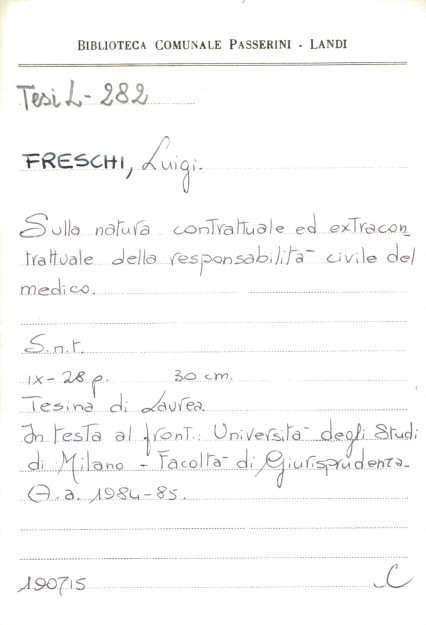 BIBLIOTECA COMUNALE PASSERINI - LANDI
Tesi L - 282
FRESCHI, Luigi.
Sulla natura contrattuale ed extracon_
trattuale della responsabilità civile del
medico.
S.n.t.
IX - 28 p. 30 cm.
Tesina di Laurea.
In testa al front.: Università degli Studi
di Milano - Facoltà di Giurisprudenza.
A.a. 1984-85.
190715 C